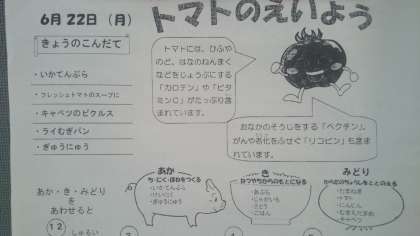 6月22日（月）
トマトのえいよう
きょうのこんだて
・いかてんぷら
・フレッシュトマトのスープに
・キャベツのピクルス
・ライむぎパン
・ぎゅうにゅう
トマトには、ひふや
のど、はなのねんまく
などをじょうぶにする
「カロテン」や「ビタ
ミンC」がたっぷり含
まれています。
おなかのそうじをする「ペクチン」
がんや老化をふせぐ「リコピン」も含ま
れています。
あか・き・みどり
を
あわせると
12
しゅるい
あか
ち・にく・ほねをつくる
・いかてんぷら
・ぎゅうにゅう
き
ねつやちからのもとになる
・あぶら
・じゃがいも
・さとう
・ごはん
みどり
からだのちょうしをととのえる
・たまねぎ
・トマト
・にんじん
・キャベツ